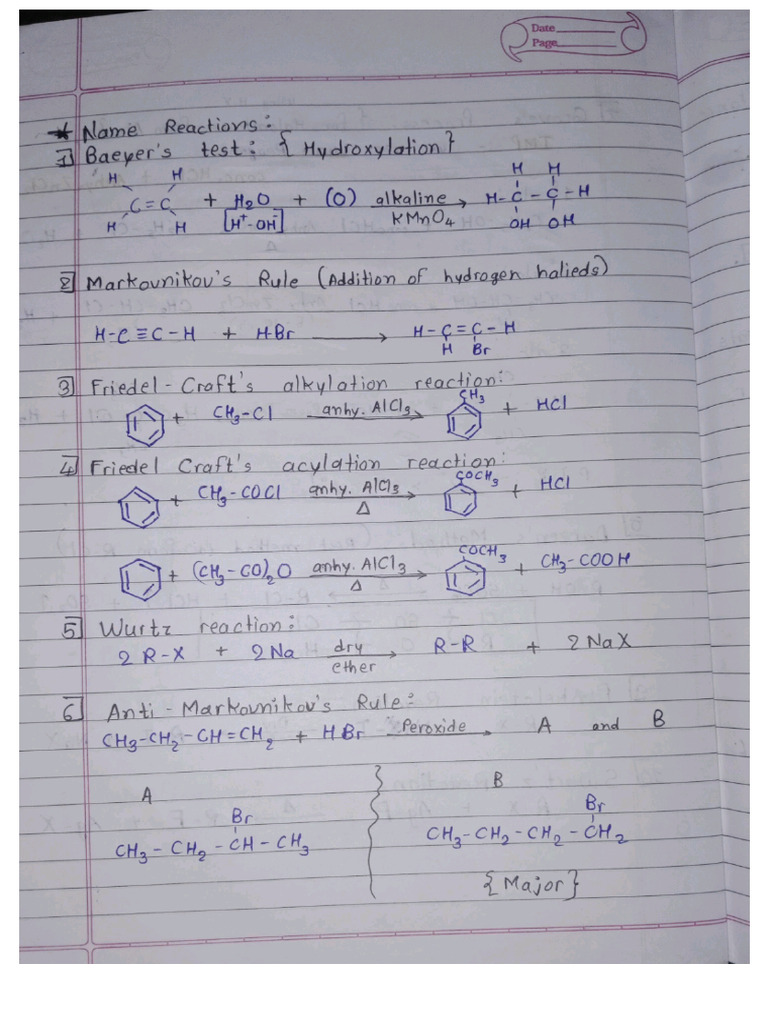 Date
Page
* Name Reactions:
1] Baeyer's test: { Hydroxylation}
H H H H
C = C + H2O + (O) alkaline KMnO4 → H - C - C - H
H H [H+ - OH-] OH OH
2] Markovnikov's Rule (Addition of hydrogen halieds)
H - C ≡ C - H + H-Br → H - C = C - H
H Br
3] Friedel - Craft's alkylation reaction:
CH3
+ CH3 - Cl anhy. AlCl3 → + HCl
4] Friedel Craft's acylation reaction:
COCH3
+ CH3 - COCl anhy. AlCl3 → + HCl
Δ
COCH3
+ (CH3 - CO)2O anhy. AlCl3 → + CH3 - COOH
Δ
5] Wurtz reaction:
2 R - X + 2 Na dry ether → R - R + 2 NaX
6] Anti - Markovnikov's Rule:
CH3-CH2-CH=CH2 + HBr Peroxide → A and B
A B
Br Br
CH3 - CH2 - CH - CH3 CH3 - CH2 - CH2 - CH2
{ Major}